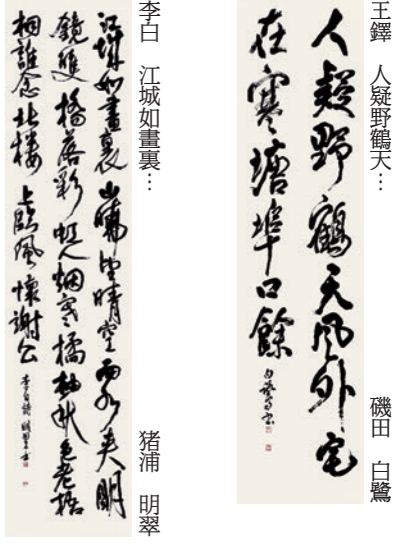 王鐸　人疑野鶴天…　磯田　白鷺
人疑野鶴天風外宅
在寒塘埠口餘
白鷺書
李白　江城如畫裏…　猪浦　明翠
江城如畫裏山曉望晴空兩水夾明
鏡雙橋落彩虹人烟寒橘柚秋色老梧
桐誰念北樓上臨風懷謝公
李白詩 明翠書